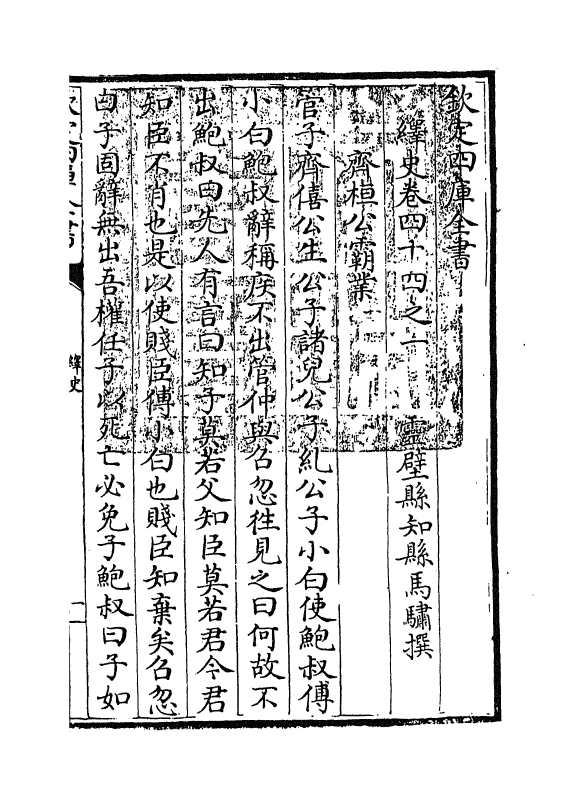 欽定四庫全書
繹史卷四十四之一
靈璧縣知縣馬驌撰
齊桓公霸業
管子齊僖公生公子諸兒公子糺公子小白使鮑叔傅
小白鮑叔辭稱疾不出管仲與召忽徃見之曰何故不
出鮑叔曰先人有言曰知子莫若父知臣莫若君今君
知臣不肖也是以使賤臣傅小白也賤臣知棄矣召忽
曰子固辭無出吾權任子以死亡必免子鮑叔曰子如
繹史
一